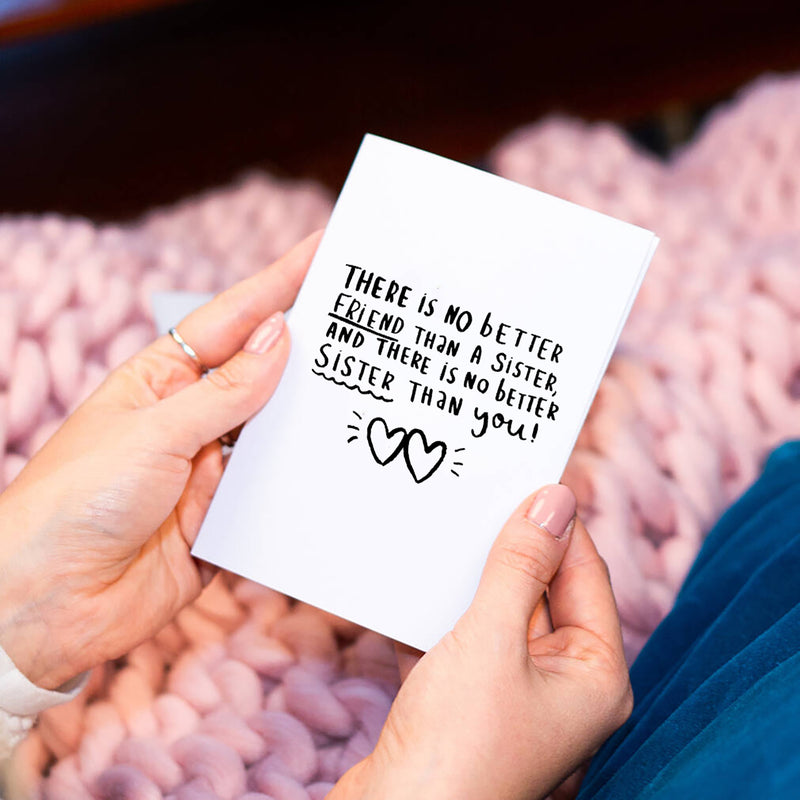 THERE IS NO bETTER
FRIEND THaN A SISTER,
AND THERE IS NO bETTER
SISTER THaN you!